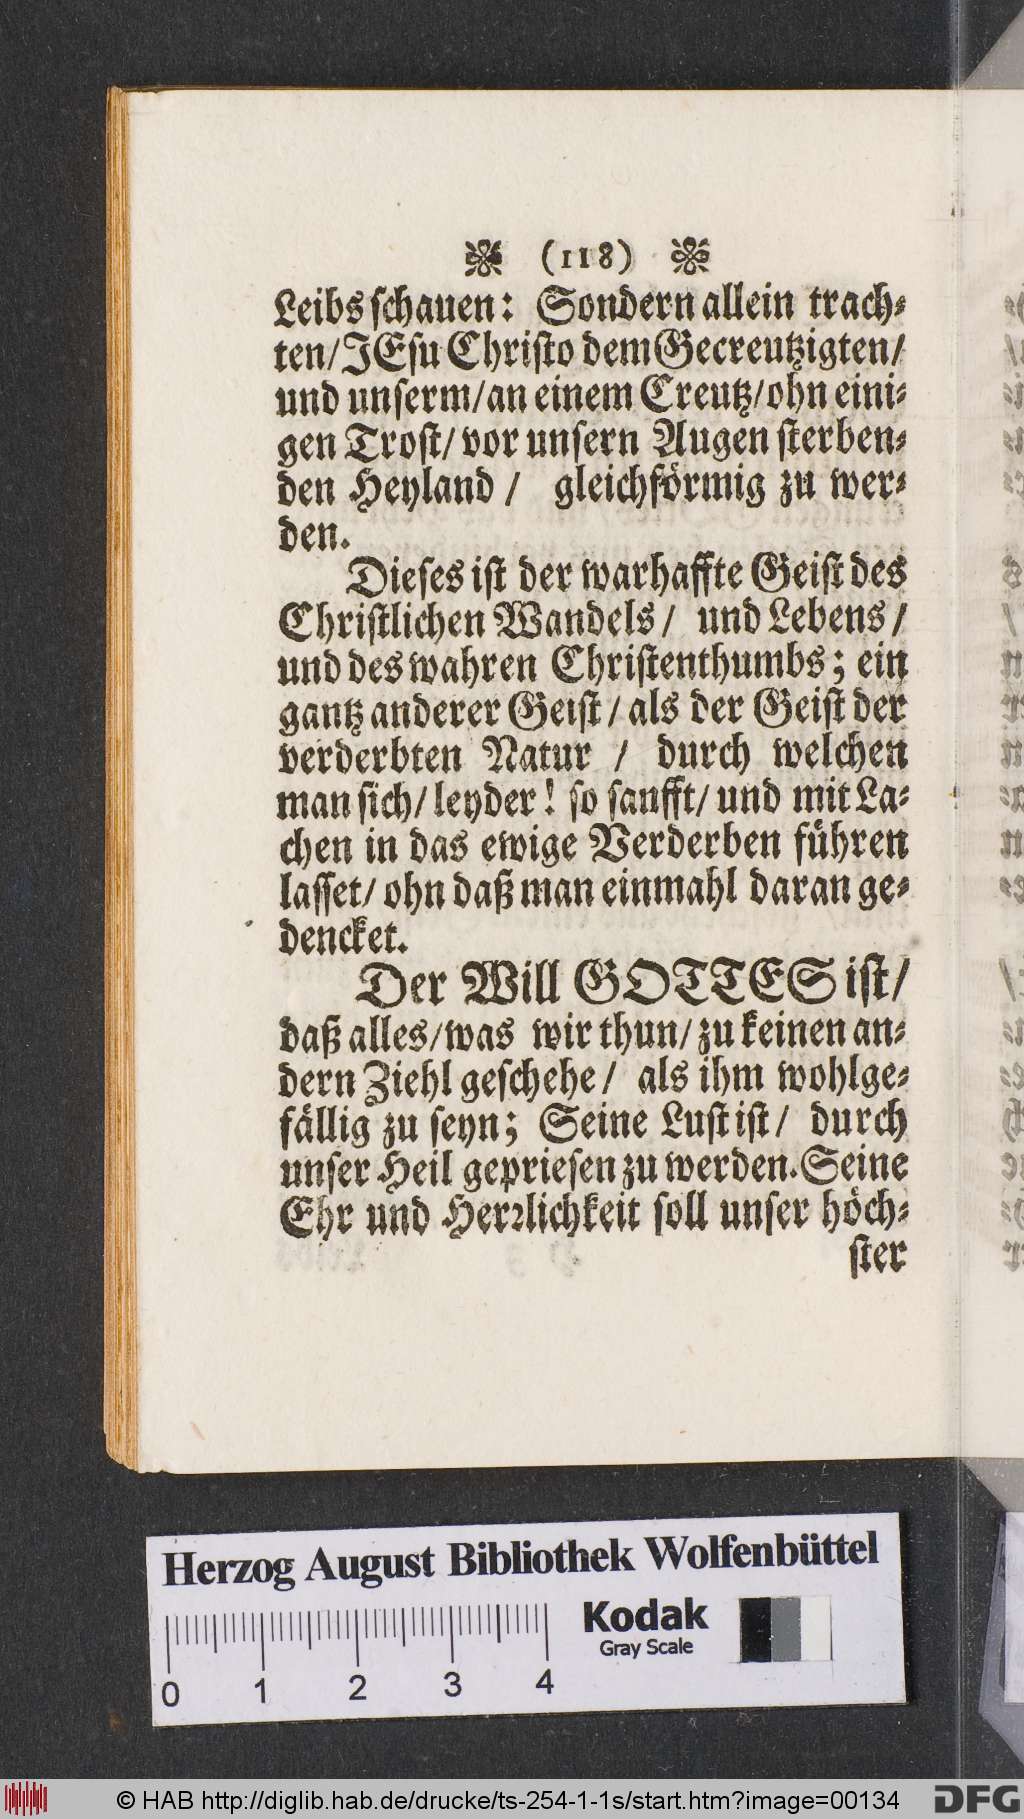 (118)
Leibs schauen: Sondern allein trach-
ten/ JEsu Christo dem Gecreutzigten/
und unserm/ an einem Creutz/ ohn eini-
gen Trost/ vor unsern Augen sterben-
den Heyland / gleichförmig zu wer-
den.
Dieses ist der warhaffte Geist des
Christlichen Wandels / und Lebens /
und des wahren Christenthumbs; ein
gantz anderer Geist / als der Geist der
verderbten Natur / durch welchen
man sich/ leyder! so sanfft/ und mit La-
chen in das ewige Verderben führen
lasset/ ohn daß man einmahl daran ge-
dencket.
Der Will GOTTES ist/
daß alles/ was wir thun/ zu keinen an-
dern Ziehl geschehe / als ihm wohlge-
fällig zu seyn; Seine Lust ist / durch
unser Heil gepriesen zu werden. Seine
Ehr und Herrlichkeit soll unser höch-
ster
Herzog August Bibliothek Wolfenbüttel
Kodak
Gray Scale
0 1 2 3 4
© HAB http://diglib.hab.de/drucke/ts-254-1-1s/start.htm?image=00134
DFG